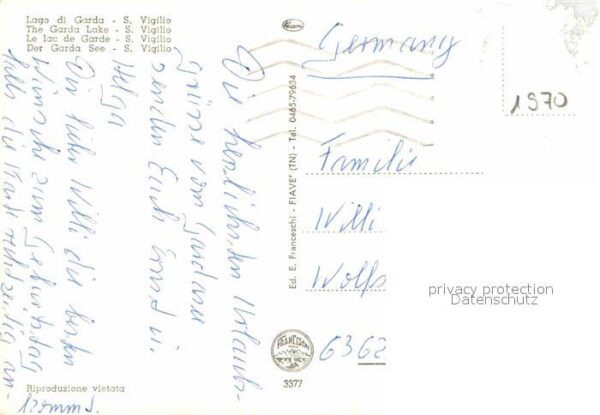 Lago di Garda - S. Vigilio
The Garda Lake - S. Vigilio
Le lac de Garde - S. Vigilio
Der Garda See - S. Vigilio
Die herzlichsten Urlaubs-
grüsse vom Gardasee
senden Euch Ernst u.
Helga
Dir lieber Willi die besten
Wünsche zum Geburtstag
falls die Karte rechtzeitig an-
kommt.
Riproduzione vietata
Ed. E. Franceschi - FIAVE' (TN) - Tel. 0465-79634
FRANCESCHI
3377
Germany
1970
Familie
Willi
Wolfs
6362
privacy protection
Datenschutz